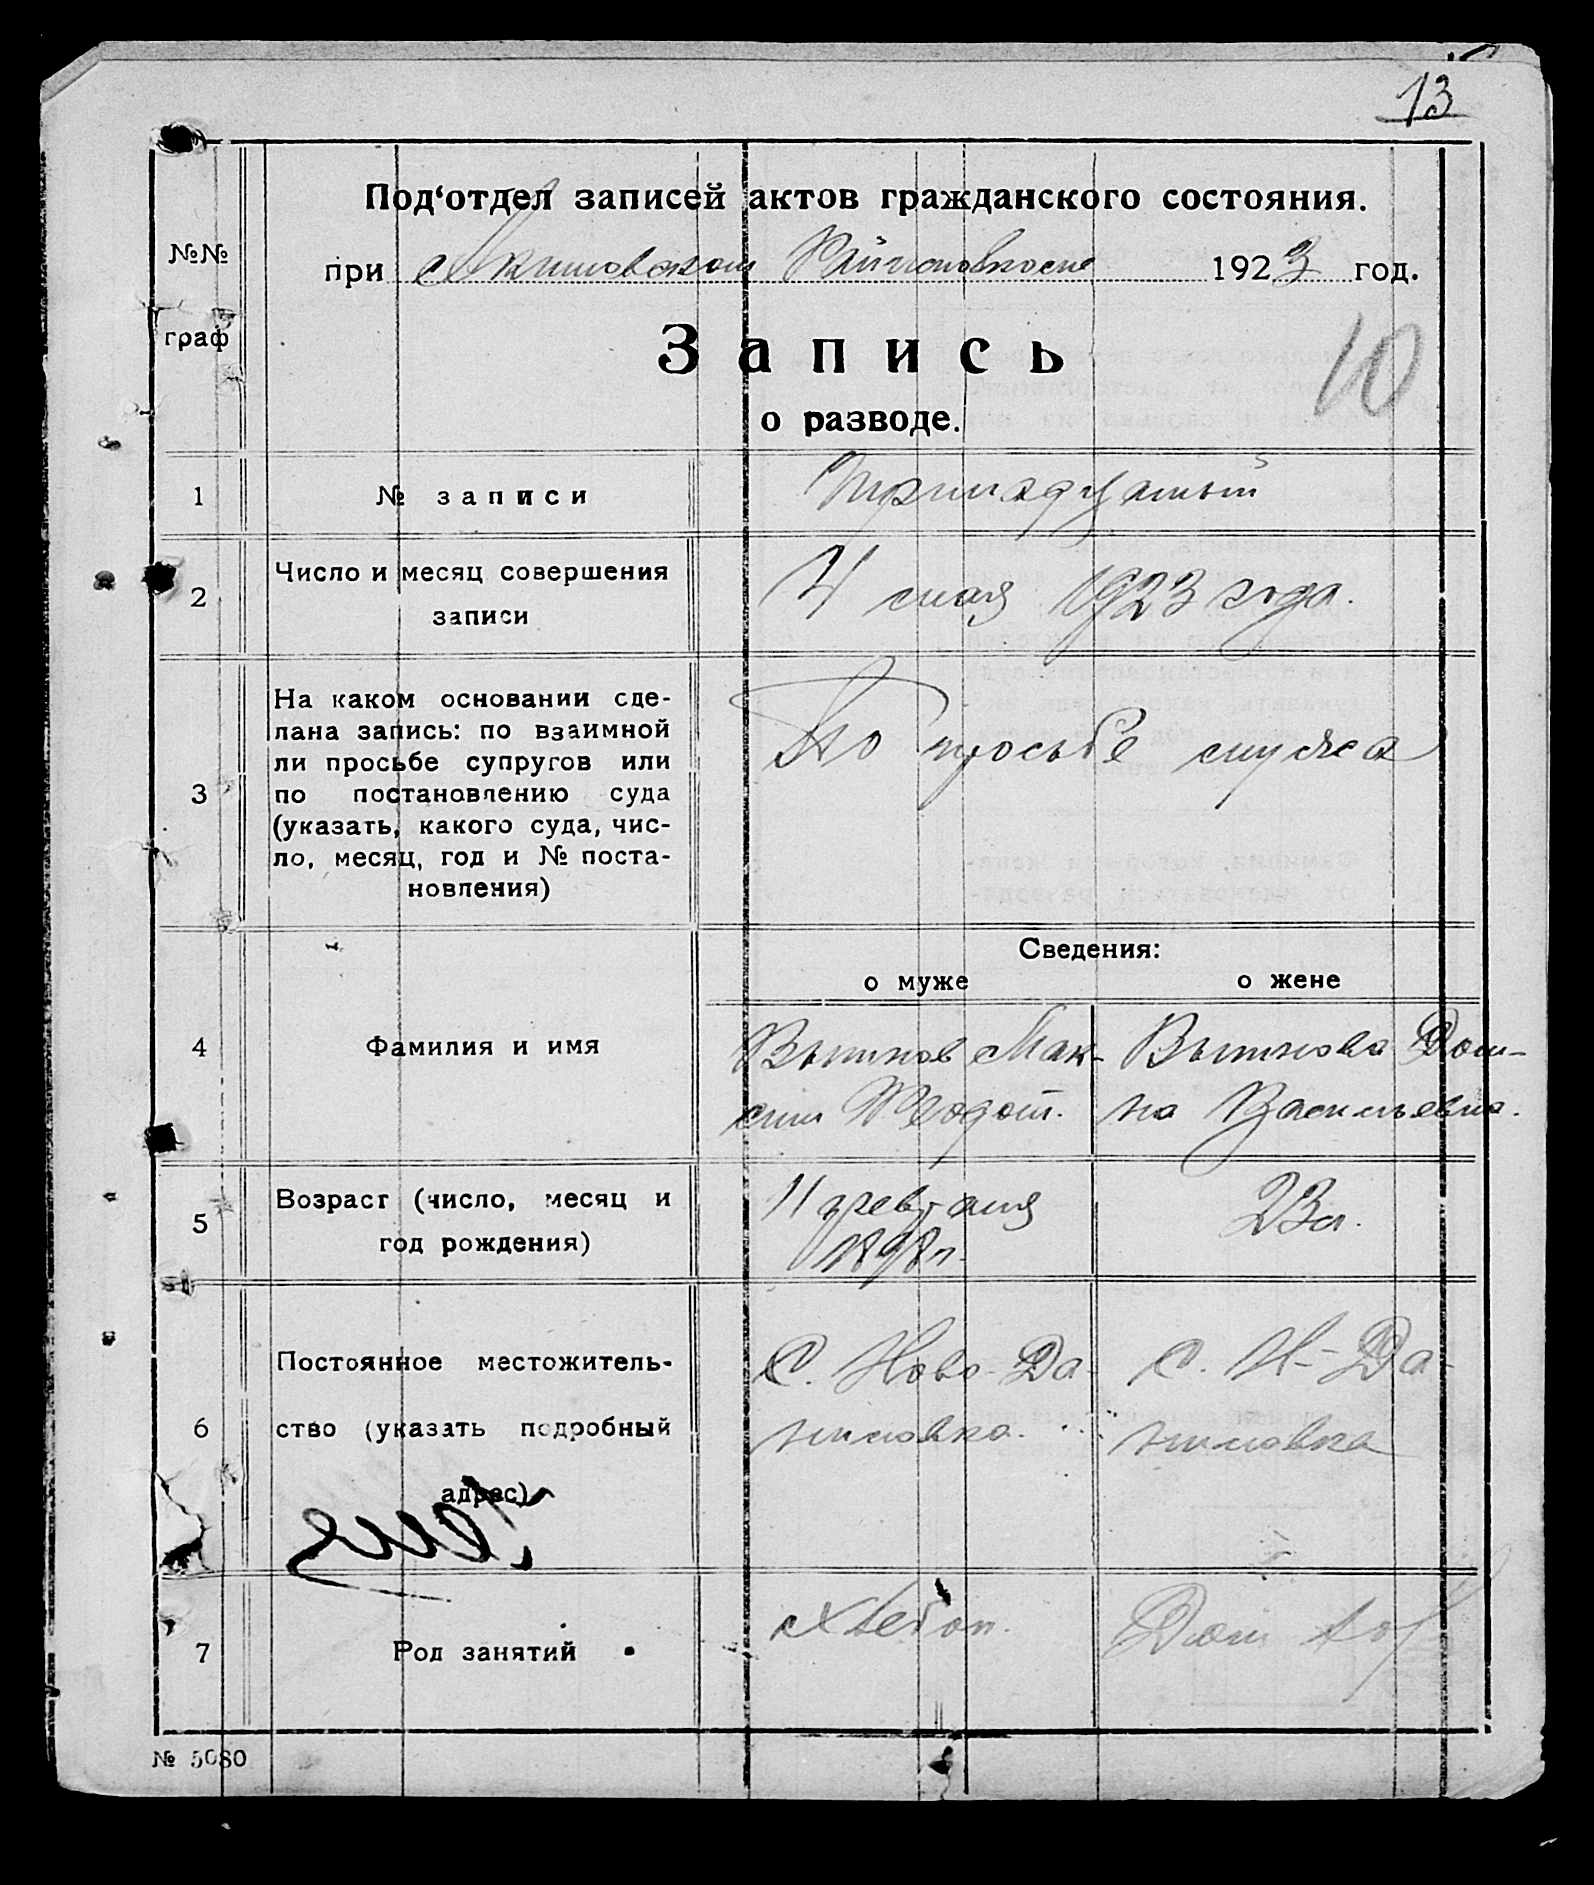 13
Под‘отдел записей актов гражданского состояния.
№№
граф
при Акимовском Райисполкоме 1923 год.
Запись
10
о разводе.
1 № записи Тринадцатый
2 Число и месяц совершения
записи
4 мая 1923 года.
3 На каком основании сде-
лана запись: по взаимной
ли просьбе супругов или
по постановлению суда
(указать, какого суда, чис-
ло, месяц, год и № поста-
новления)
По просьбе мужа
Сведения:
о муже о жене
4 Фамилия и имя
Мак-
сим Федот.
Дом-
на Васильевна.
5 Возраст (число, месяц и
год рождения)
11 февраля
1898 г.
23 л.
6 Постоянное местожитель-
ство (указать подробный
адрес)
С. Ново-Да-
ниловка.
С. Н-Да-
ниловка
7 Род занятий
Хлебоп.
Дом
№ 5080